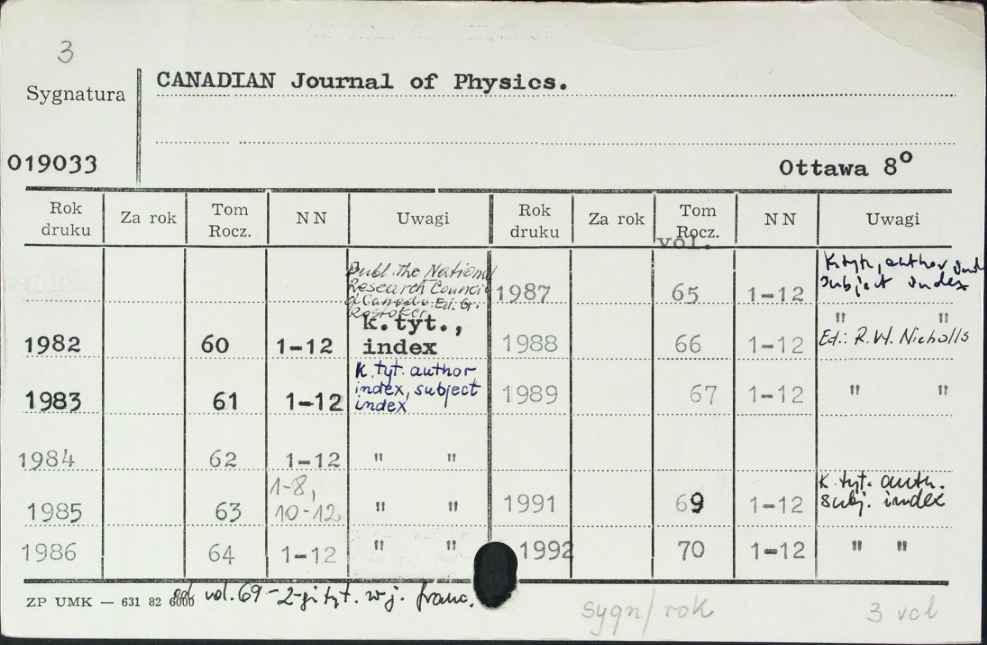 3
Sygnatura
CANADIAN Journal of Physics.
019033
Ottawa 8°
Rok druku Za rok Tom Rocz. NN Uwagi Rok druku Za rok Tom Rocz. NN Uwagi
vol.
Publ. The National
Research Council
of Canada. Ed. G.
1987 65 1-12 K.tyt., author and
subject index
1982 60 1-12 k.tyt.,
index
1988 66 1-12 " "
Ed.: R.W. Nicholls
1983 61 1-12 K. tyt. author
index, subject
index
1989 67 1-12 " "
1984 62 1-12 " "
1985 63 1-8,
10-12 " "
1991 69 1-12 K. tyt. auth.
subj. index
1986 64 1-12 " "
1992 70 1-12 " "
ZP UMK — 631 82 6000
od vol. 69 - 2-gi tyt. w j. franc.
sygn/rok
3 vol